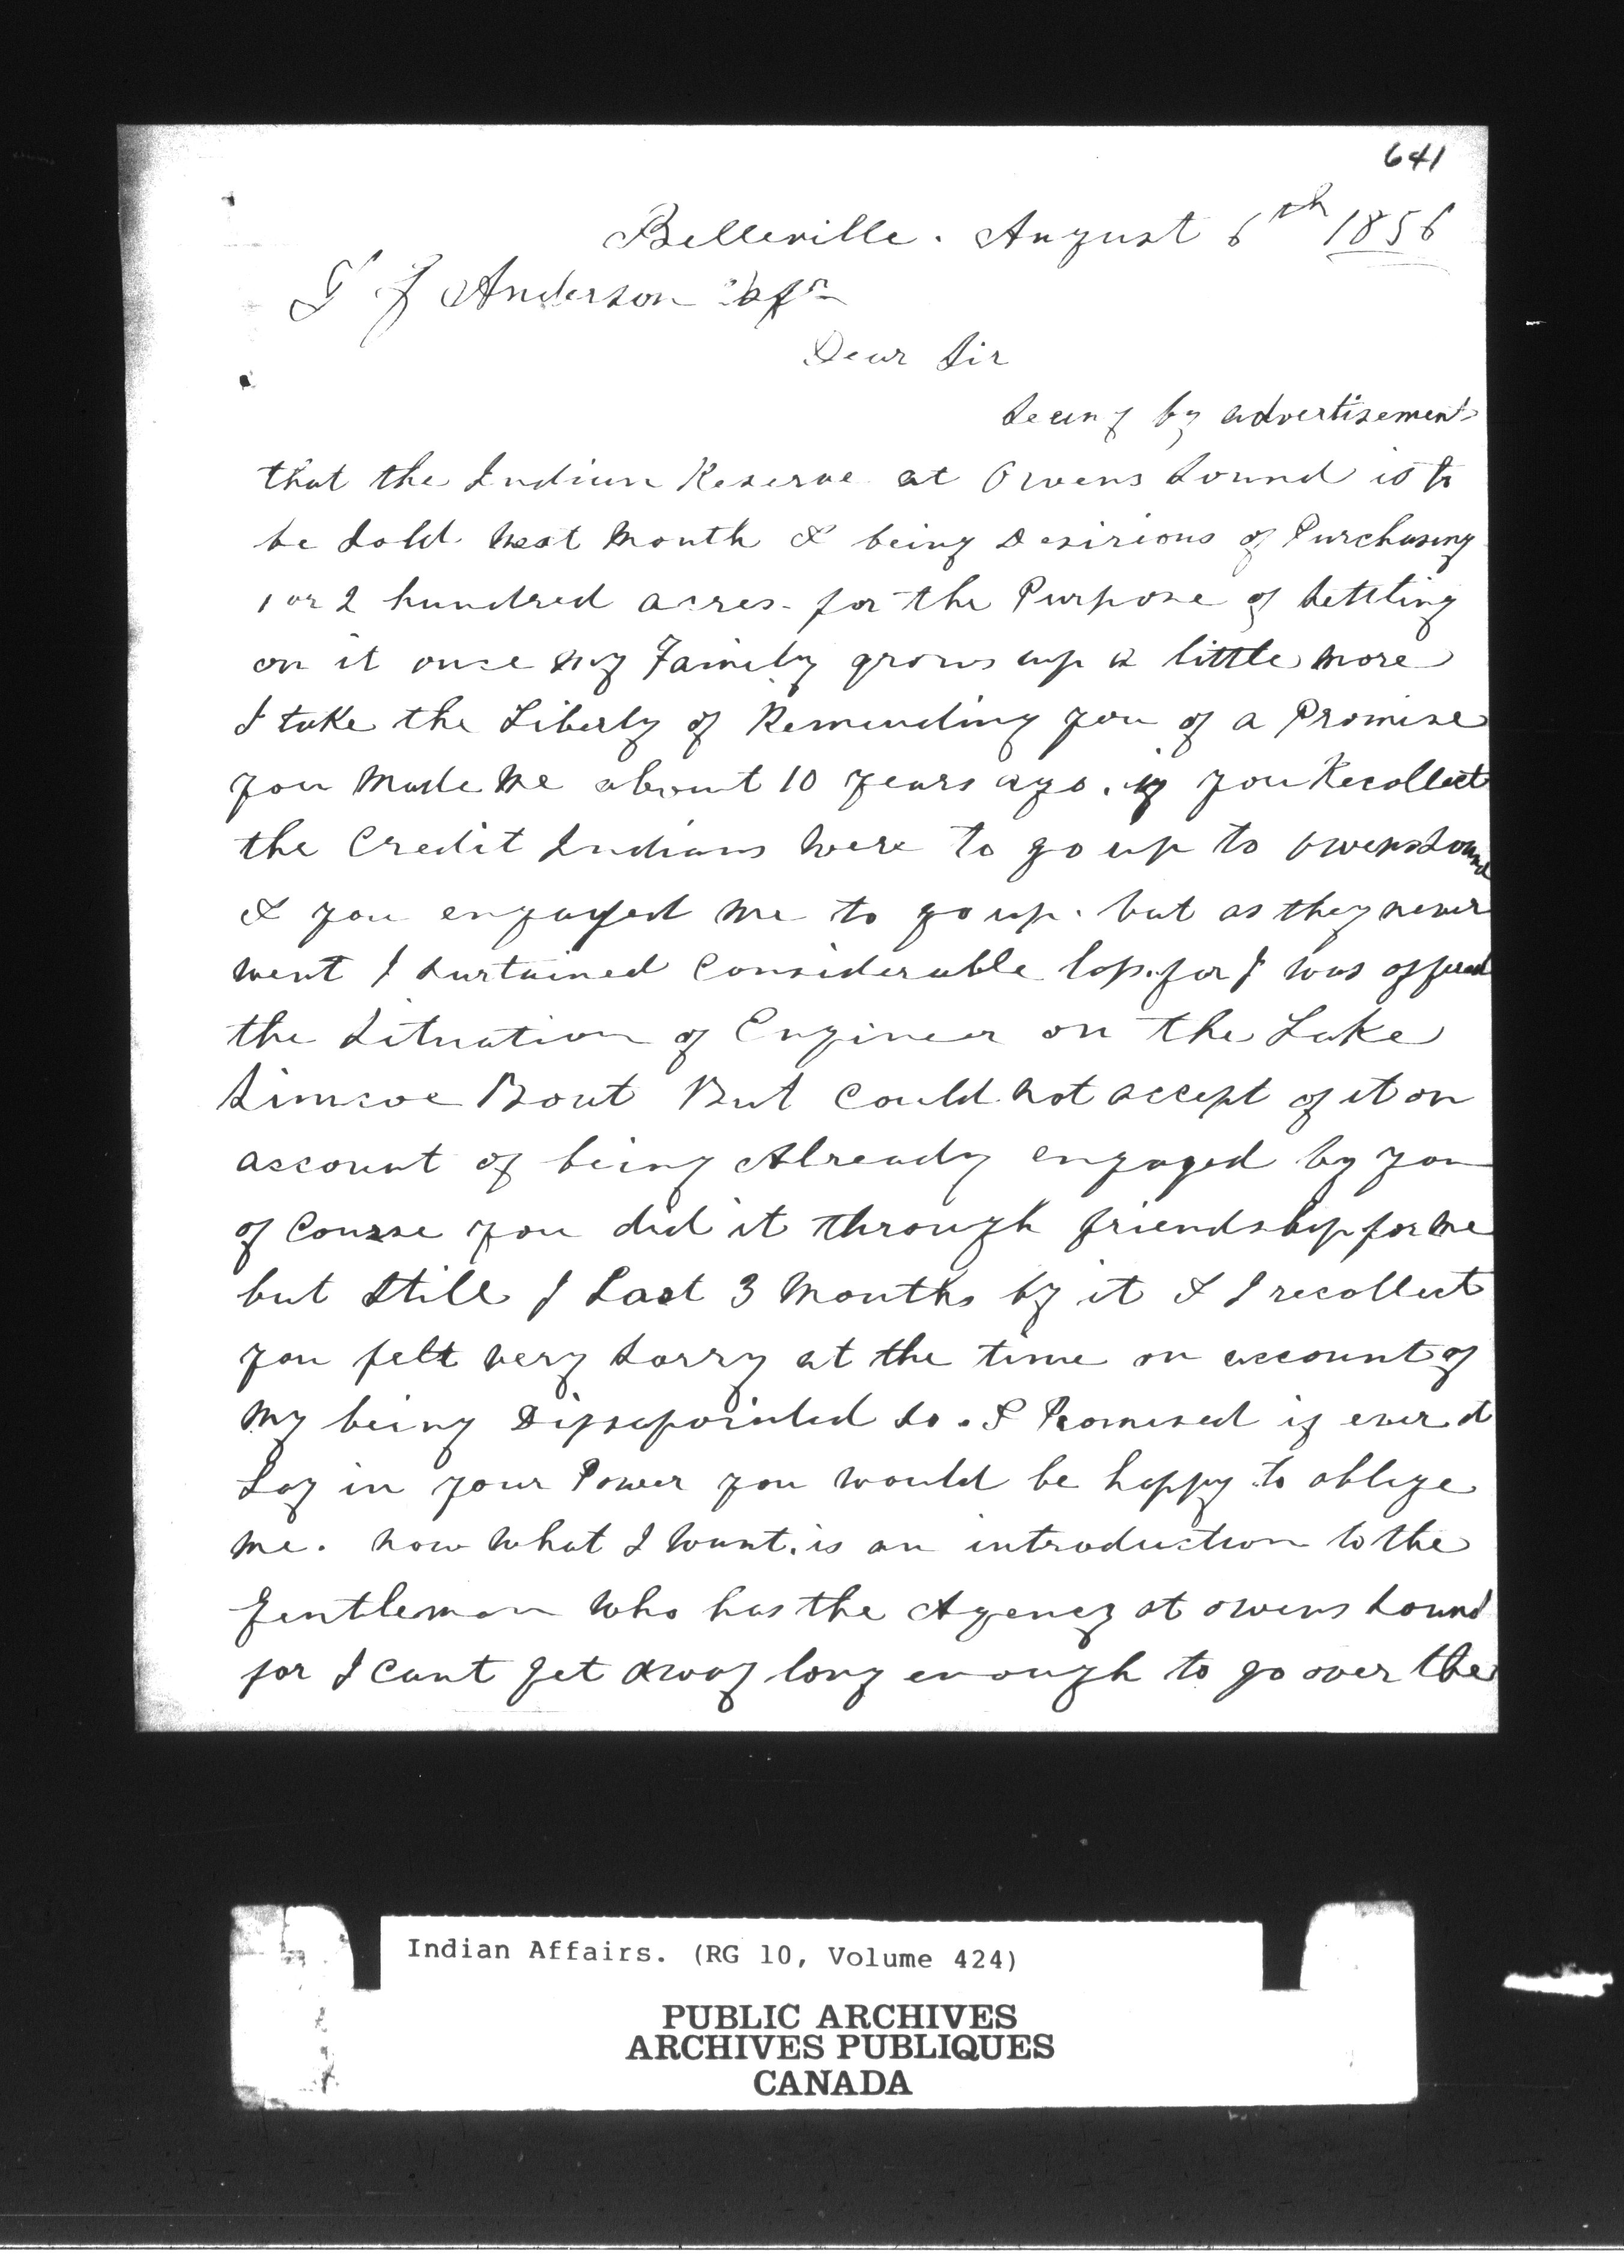 641
Belleville. August 6th 1856
T G Anderson Esqr
Dear Sir
Seeing by advertisement
that the Indian Reserve at Owens Sound is to
be Sold next Month & being Desirious of Purchasing
1 or 2 hundred acres for the Purpose of Settling
on it once my Family grows up a little more
I take the Liberty of Reminding you of a Promise
you Made Me about 10 years ago. if you Recollect
the Credit Indians were to go up to Owens Sound
& you engaged me to go up. but as they never
went I Surtained Considerable loss. for I was offered
the Situation of Engineer on the Lake
Simcoe Boat But Could not accept of it on
account of being Already engaged by you
of Course you did it through friendship for Me
but Still I Last 3 Months by it & I recollect
you felt very Sorry at the time on account of
My being Dissapointed So. & Promised if ever it
Lay in your Power you would be happy to oblige
me. now what I want. is an introduction to the
Gentleman who has the Agency at Owens Sound
for I Cant Get away long enough to go over the
Indian Affairs. (RG 10, Volume 424)
PUBLIC ARCHIVES
ARCHIVES PUBLIQUES
CANADA